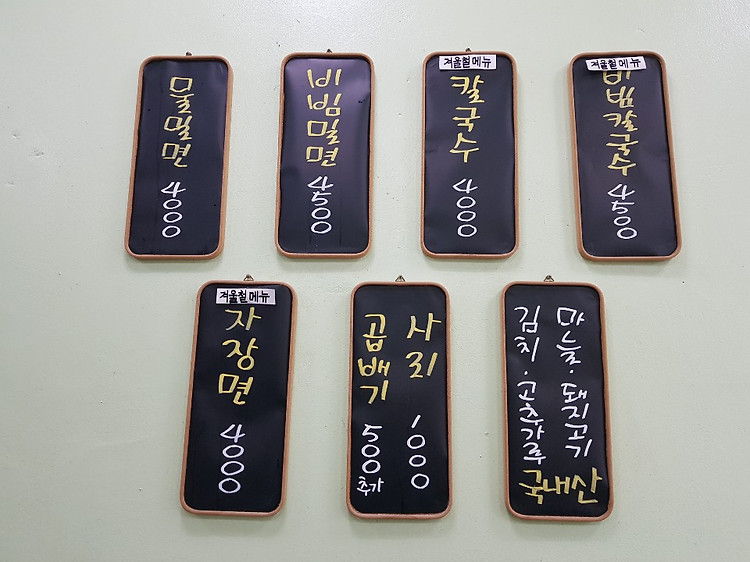 물밀면
4000
비빔밀면
4500
겨울철메뉴
칼국수
4000
겨울철메뉴
비빔칼국수
4500
겨울철메뉴
자장면
4000
사리
1000
곱배기
500추가
마늘·돼지고기
김치·고추가루
국내산